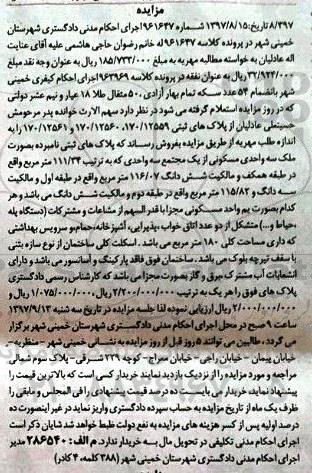 مزایده
۸/۳۹۷ تاریخ: ۱۳۹۷/۸/۱۵ شماره ۹۶۱۶۴۷ اجرای احکام مدنی دادگستری شهرستان
خمینی شهر در پرونده کلاسه ۹۶۱۶۴۷له خانم رضوان حاجی هاشمی علیه آقای عنایت
اله عادلیان به خواسته مطالبه مهریه به مبلغ ۱۸۵/۷۷۳/۰۰۰ ریال به عنوان وجه نقد مبلغ
۳۲/۹۲۴/۰۰۰ ریال به عنوان نفقه در پرونده کلاسه ۹۶۳۹۶۹ اجرای احکام کیفری خمینی
شهر بانضمام ۵۴ عدد سکه تمام بهار آزادی ۵۰۰ مثقال طلا ۱۸ عیار و نیم عشر دولتی
که در روز مزایده استعلام گرفته می شود در نظر دارد سهم الارث خوانده پدر مرحومش
حسینعلی عادلیان از پلاک های ثبتی ۱۷۰/۱۲۵۵۹، ۱۷۰/۱۲۵۶۰ و ۱۷۰/۱۲۵۶۱ را
بابت طلب مهریه از طریق مزایده بفروش رساند که پلاک های ثبتی نامبرده بصورت
ملک سه واحدی مسکونی از یک مجتمع سه واحدی که به ترتیب ۱۱۱/۳۴ متر مربع واقع
در طبقه همکف و مالکیت شش دانگ ۱۱۶/۰۷ متر مربع واقع در طبقه اول و مالکیت
سه دانگ و ۱۱۵/۸۲ متر مربع واقع در طبقه دوم و مالکیت شش دانگ می باشد و هر
کدام بصورت یم واحد مسکونی مجزا با قدر السهم از مشاعات و مشترکات (دستگاه پله
،حیاط و...) متشکل از دو عدد اتاق خواب ،پذیرایی، آشپزخانه،حمام،و سرویس بهداشتی
که داری مساحت کلی ۱۸۰ متر مربع می باشد . اسکلت کلی ساختمان از نوع سازه بتنی
با سقف تیرچه بلوک می باشد . ساختمان فوق فاقد پارکینگ و آسانسور می باشد و دارای
انشعابات آب مشترک ،برق و گاز بصورت مجزا می باشد که کارشناس رسمی دادگستری
پلاک های فوق را هر یک به ترتیب ۲/۲۰۰/۰۰۰/۰۰۰ ریال، ۱/۰۷۵/۰۰۰/۰۰۰ ریال و
۲/۰۰۰/۰۰۰/۰۰۰ ریال ارزیابی نموده لذا جلسه مزایده در تاریخ سه شنبه ۱۳۹۷/۹/۱۳
ساعت ۹ صبح در محل اجرای احکام مدنی دادگستری شهرستان خمینی شهر برگزار
می گردد ، طالبین می توانند ۵ روز قبل از روز مزایده به نشانی خمینی شهر - منظریه -
خیابان پیمان - خیابان راجی - خیابان معراج - کوچه ۲۲۹ شرقی - پلاک سوم شمالی
مراجعه و مورد مزایده را از نزدیک بازدید نمایند خریدار کسی است که بالاترین قیمت را
پیشنهاد نماید، خریدار می بایست ده درصد قیمت پیشنهادی را فی المجلس و مابقی را
ظرف یک ماه از تاریخ مزایده به حساب سپرده دادگستری واریز نماید در غیر اینصورت ده
درصد اولیه پس از کسر هزینه های مزایده به نفع دولت ظبط خواهد شد شایان ذکر است
اجرای احکام مدنی تکلیفی در تحویل مال به خریدار ندارد. م الف: ۲۸۶۵۴۰ مدیر
اجرای احکام مدنی دادگستری شهرستان خمینی شهر (۳۸۸ کلمه، ۴ کادر)